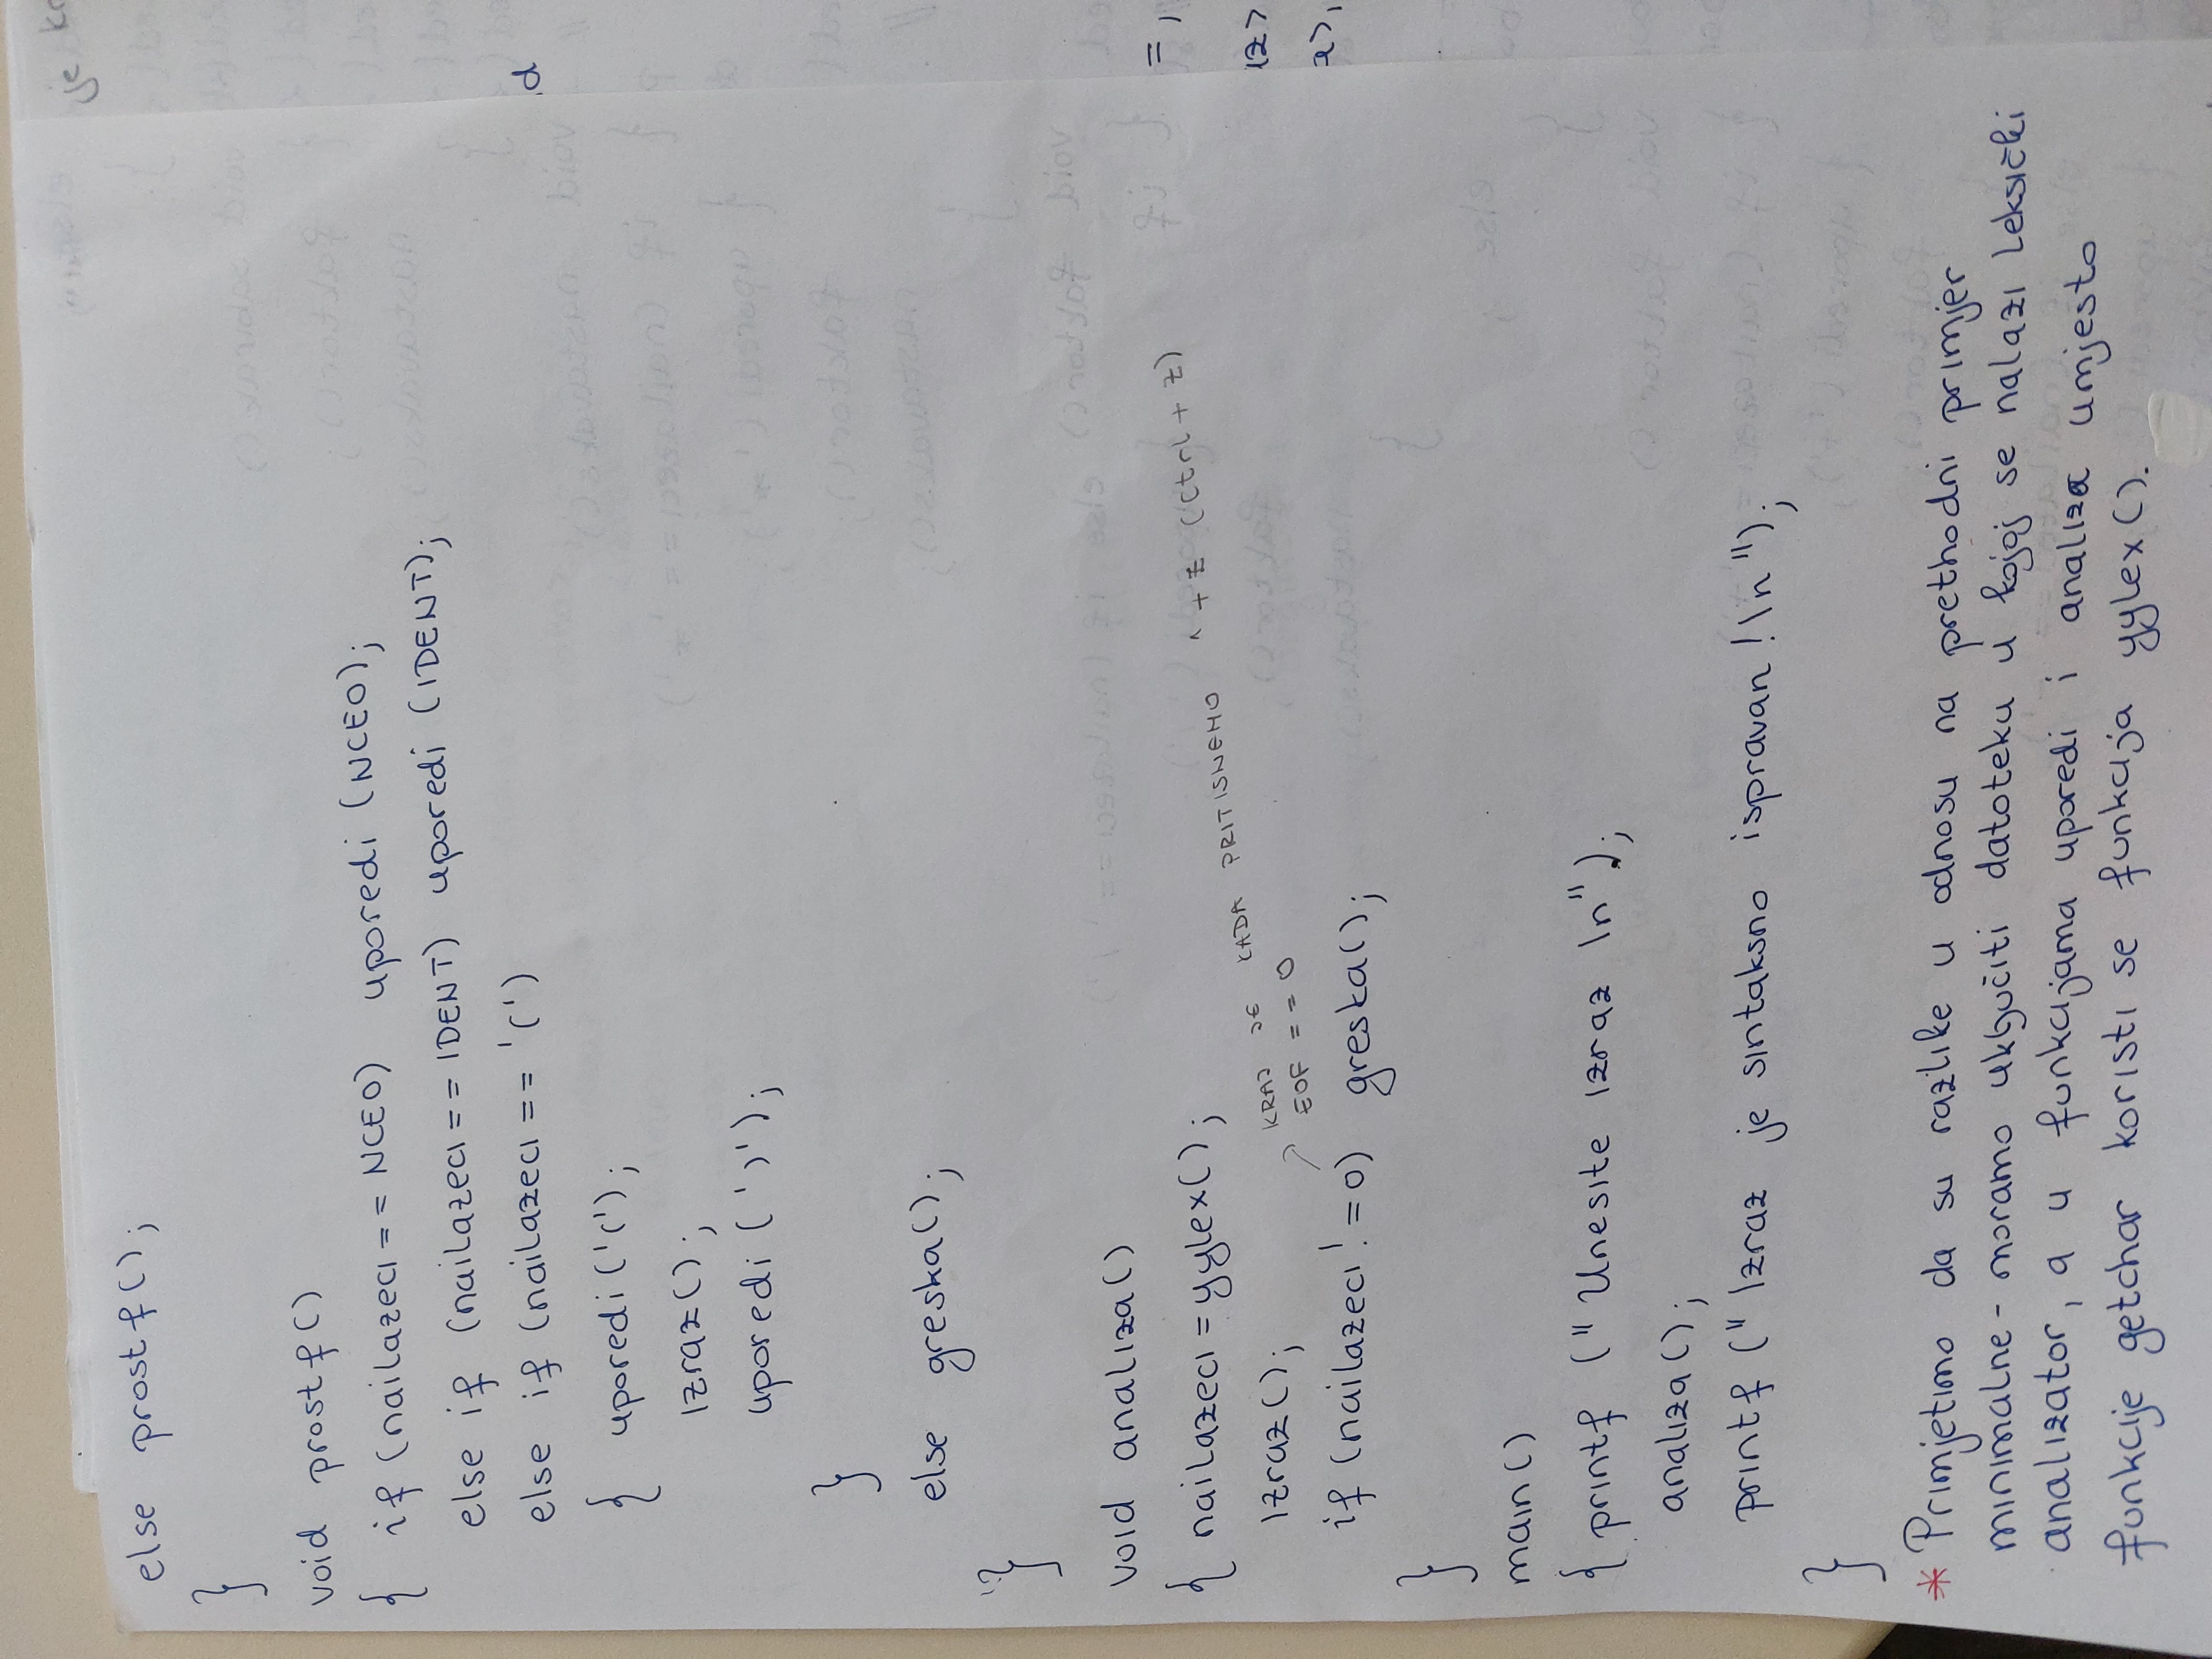 else prostf();
}
void prostf()
{ if (nailazeci == NCEO) uporedi (NCEO);
else if (nailazeci == IDENT) uporedi (IDENT);
else if (nailazeci == '(')
{ uporedi('(');
izraz();
uporedi (')');
}
else greska();
}
void analiza()
{ nailazeci = yylex();
izraz();
KRAJ JE KADA PRITISNEMO ^ + Z (Ctrl + Z)
EOF == 0
if (nailazeci != 0) greska();
}
main()
{ printf ("Unesite izraz \n");
analiza();
printf ("Izraz je sintaksno ispravan!\n");
}
* Primjetimo da su razlike u odnosu na prethodni primjer
minimalne - moramo uključiti datoteku u kojoj se nalazi leksički
analizator, a u funkcijama uporedi i analiza umjesto
funkcije getchar koristi se funkcija yylex().